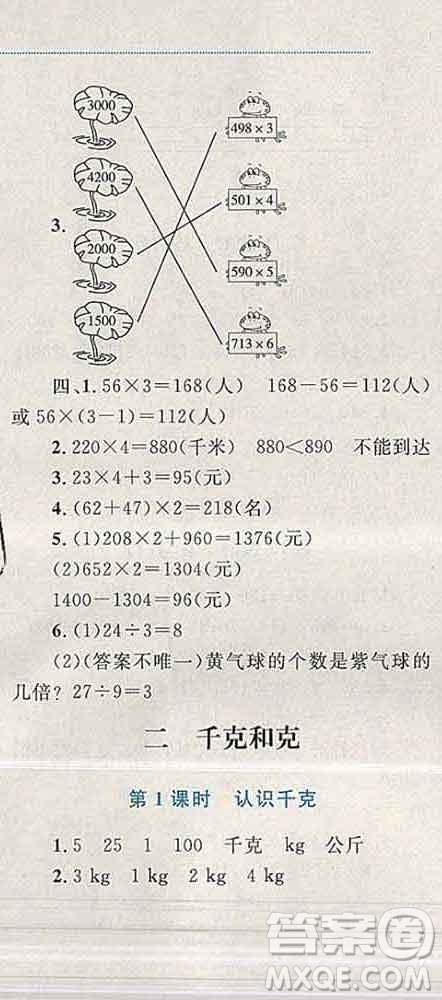 3000 498×3
4200 501×4
3.
2000 590×5
1500 713×6
四、1. 56×3=168(人) 168-56=112(人)
或 56×(3-1)=112(人)
2. 220×4=880(千米) 880<890 不能到达
3. 23×4+3=95(元)
4. (62+47)×2=218(名)
5. (1)208×2+960=1376(元)
(2)652×2=1304(元)
1400-1304=96(元)
6. (1)24÷3=8
(2)(答案不唯一)黄气球的个数是紫气球的
几倍? 27÷9=3
二 千克和克
第1课时 认识千克
1. 5 25 1 100 千克 kg 公斤
2. 3 kg 1 kg 2 kg 4 kg
答案圈
MXQE.COM